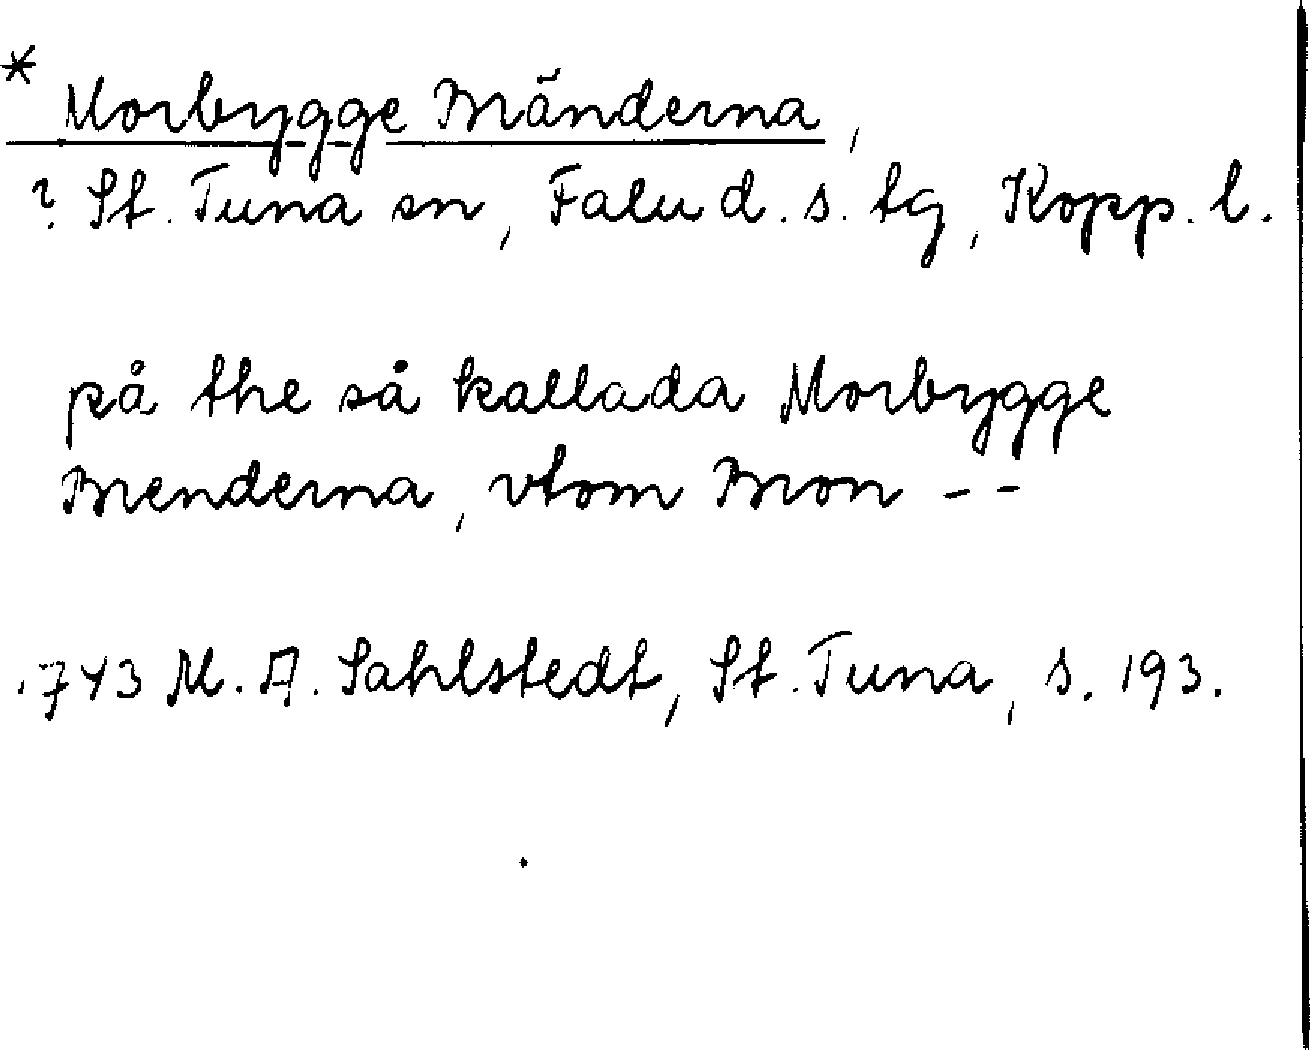 * Morbygge Bränderna,
? St. Tuna sn, Falu d. s. tg, Kopp. l.
på the så kallada Morbygge
Brenderna, vtom Bron - -
1743 M. A. Sahlstedt, St. Tuna, s. 193.